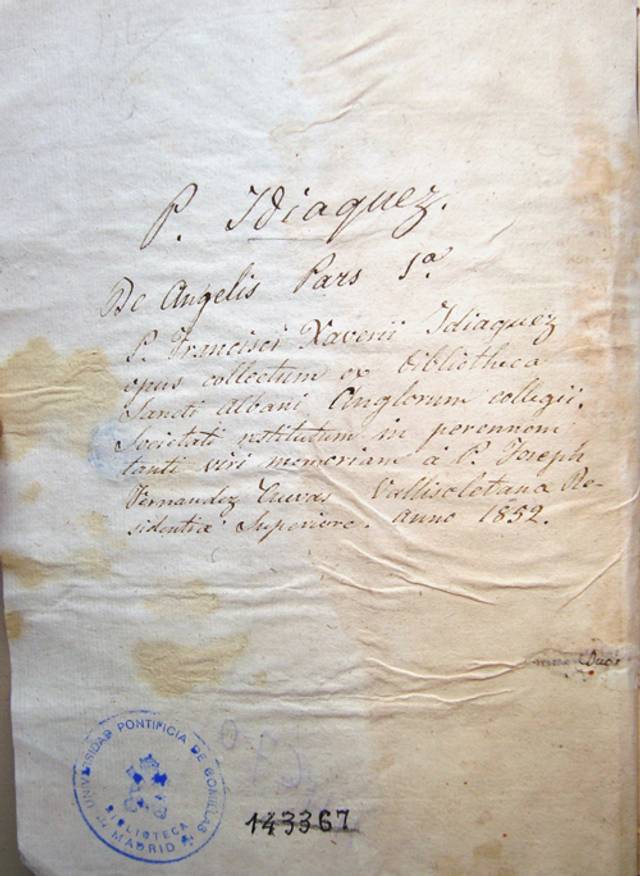 P. Idiaquez.
De Angelis Pars 1ª
P. Francisci Xaverii Idiaquez
opus collectum ex bibliotheca
Sancti Albani Anglorum collegii.
Societati restitutum in perennem
tanti viri memoriam á P. Joseph
Fernandez Cuevas Vallisoletana Re-
sidentia Superiore. anno 1852.
UNIVERSIDAD PONTIFICIA DE COMILLAS
BIBLIOTECA
MADRID
143367